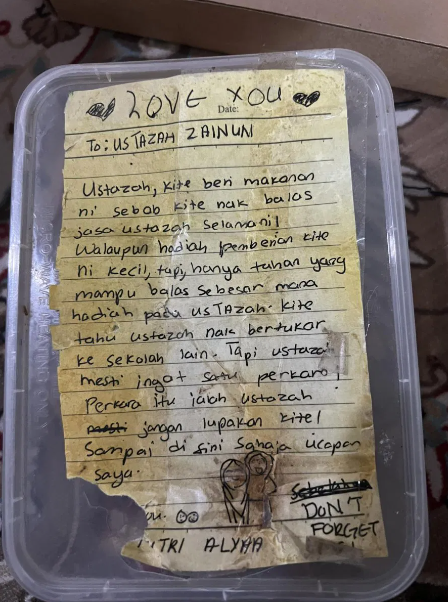 LOVE YOU
Date:
To: USTAZAH ZAINUN
Ustazah, kite beri makanan
ni sebab kite nak balas
jasa ustazah selamani!
Walaupun hadiah pemberian kite
ni kecil, tapi, hanya tuhan yang
mampu balas sebesar mana
hadiah pada usTAzah. kite
tahu ustazah nak bertukar
ke sekolah lain. Tapi ustaza
mesti ingat satu perkara!
Perkara itu ialah ustazah
jangan lupakan kite!
Sampai di sini sahaja ucapan
saya.
DON'T
FORGET
TRI ALYAA